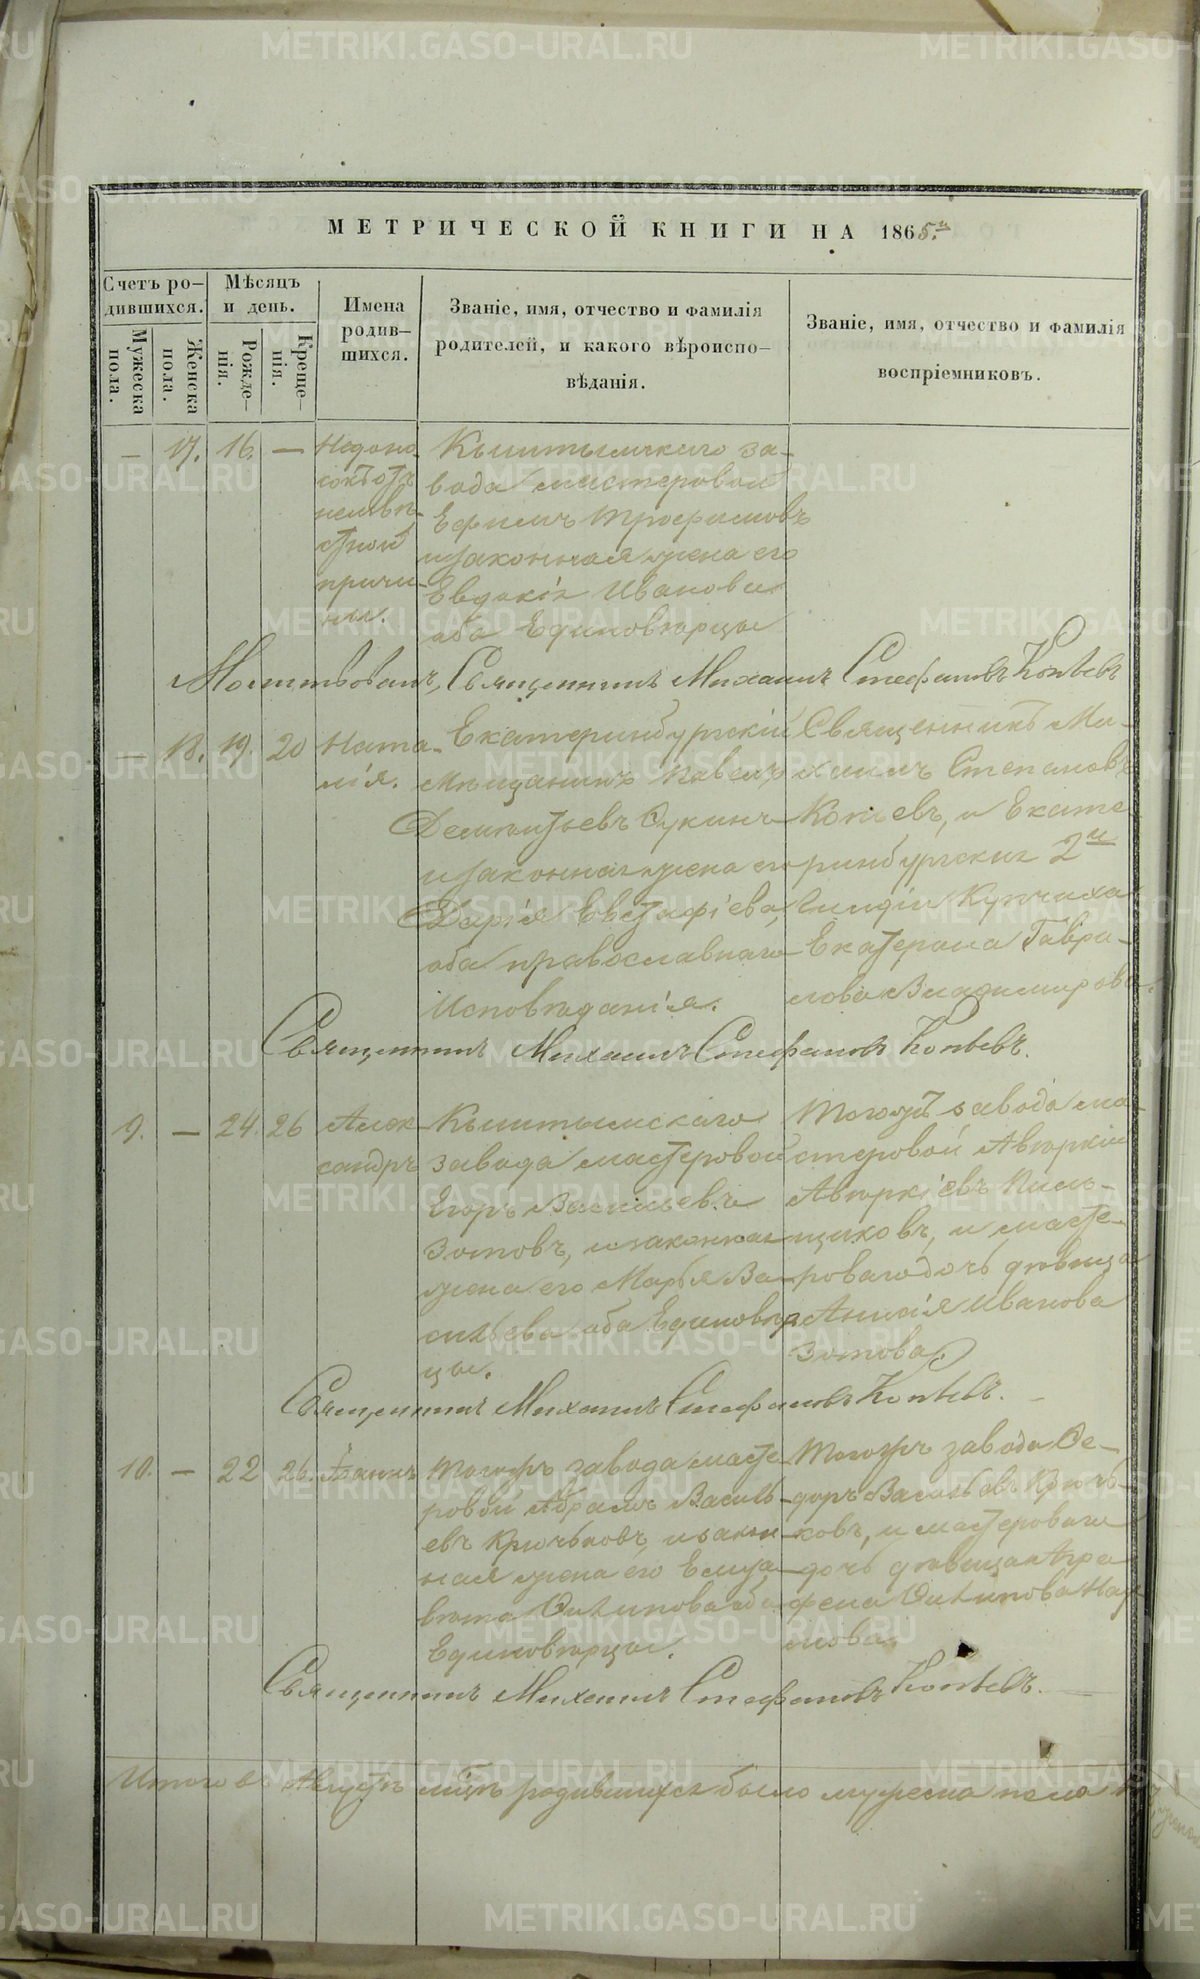 МЕТРИЧЕСКОЙ КНИГИ НА 1865.й
Счетъ ро-
дившихся.
Мѣсяцъ
и день.
Мужеска
пола.
Женска
пола.
Рожде-
нія.
Креще-
нія.
Имена
родив-
шихся.
Званіе, имя, отчество и фамилія
родителей, и какого вѣроиспо-
вѣданія.
Званіе, имя, отчество и фамилія
воспріемниковъ.
— 17. 16. —
Недоно-
неизвѣ-
стной
причи-
ны.
Кыштымскаго за-
вода мастеровой
Ефимъ Трофимовъ
и законная жена его
Евдокія Иванова
оба Единовѣрцы
Молитвовалъ, Священникъ Михаилъ Стефановъ Копѣевъ
— 18. 19. 20
Ната-
лія.
Екатеринбургскій
Мѣщанинъ Павелъ
Дементьевъ Сукинъ
и законная жена его
Дарія Евстафіева,
оба православнаго
Исповѣданія.
Священникъ Ми-
хаилъ Степановъ
Копѣевъ, и Екате-
ринбургская 2й
Гильдіи Купчиха
Екатерина Гаври-
лова Владимирова.
Священникъ Михаилъ Стефановъ Копѣевъ.
9. — 24. 26
Алек-
сандръ
Кыштымскаго
завода мастеровой
Егоръ Васильевъ
Зотовъ, и законная
жена его Марья Ва-
сильева оба Единовѣр-
цы.
Тогожъ завода ма-
стеровой Авторкій
Авторкіевъ Пиль-
щиковъ, и масте-
роваго дочь дѣвица
Анисія Иванова
Зотова.
Священникъ Михаилъ Стефановъ Копѣевъ.
10. — 22 26.
Іоаннъ
Тогожъ завода масте-
ровой Абрамъ Василь-
евъ Крючковъ, и закон-
ная жена его Елиза-
вета Осипова оба
Единовѣрцы.
Тогожъ завода Ѳе-
доръ Васильевъ Крюч-
ковъ, и мастероваго
дочь дѣвица Агра-
фена Осипова
Священникъ Михаилъ Стефановъ Копѣевъ.
Итого въ Августѣ мѣсяцѣ родившихся было мужеска пола
METRIKI.GASO-URAL.RU